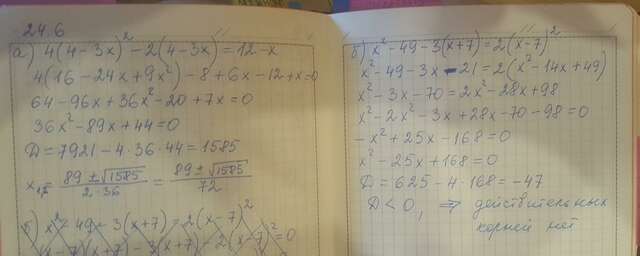 24.6
а) 4(4-3x)² - 2(4-3x) = 12-x
4(16-24x+9x²) - 8+6x-12+x=0
64-96x+36x²-20+7x=0
36x²-89x+44=0
D=7921-4·36·44=1585
x₁,₂ = (89±√1585)/(2·36) = (89±√1585)/72
б) x²-49-3(x+7)=2(x-7)²
(x-7)(x+7)-3(x+7)-2(x-7)²=0
б) x²-49-3(x+7)=2(x-7)²
x²-49-3x-21=2(x²-14x+49)
x²-3x-70=2x²-28x+98
x²-2x²-3x+28x-70-98=0
-x²+25x-168=0
x²-25x+168=0
D=625-4·168=-47
D<0, ⇒ действительных
корней нет